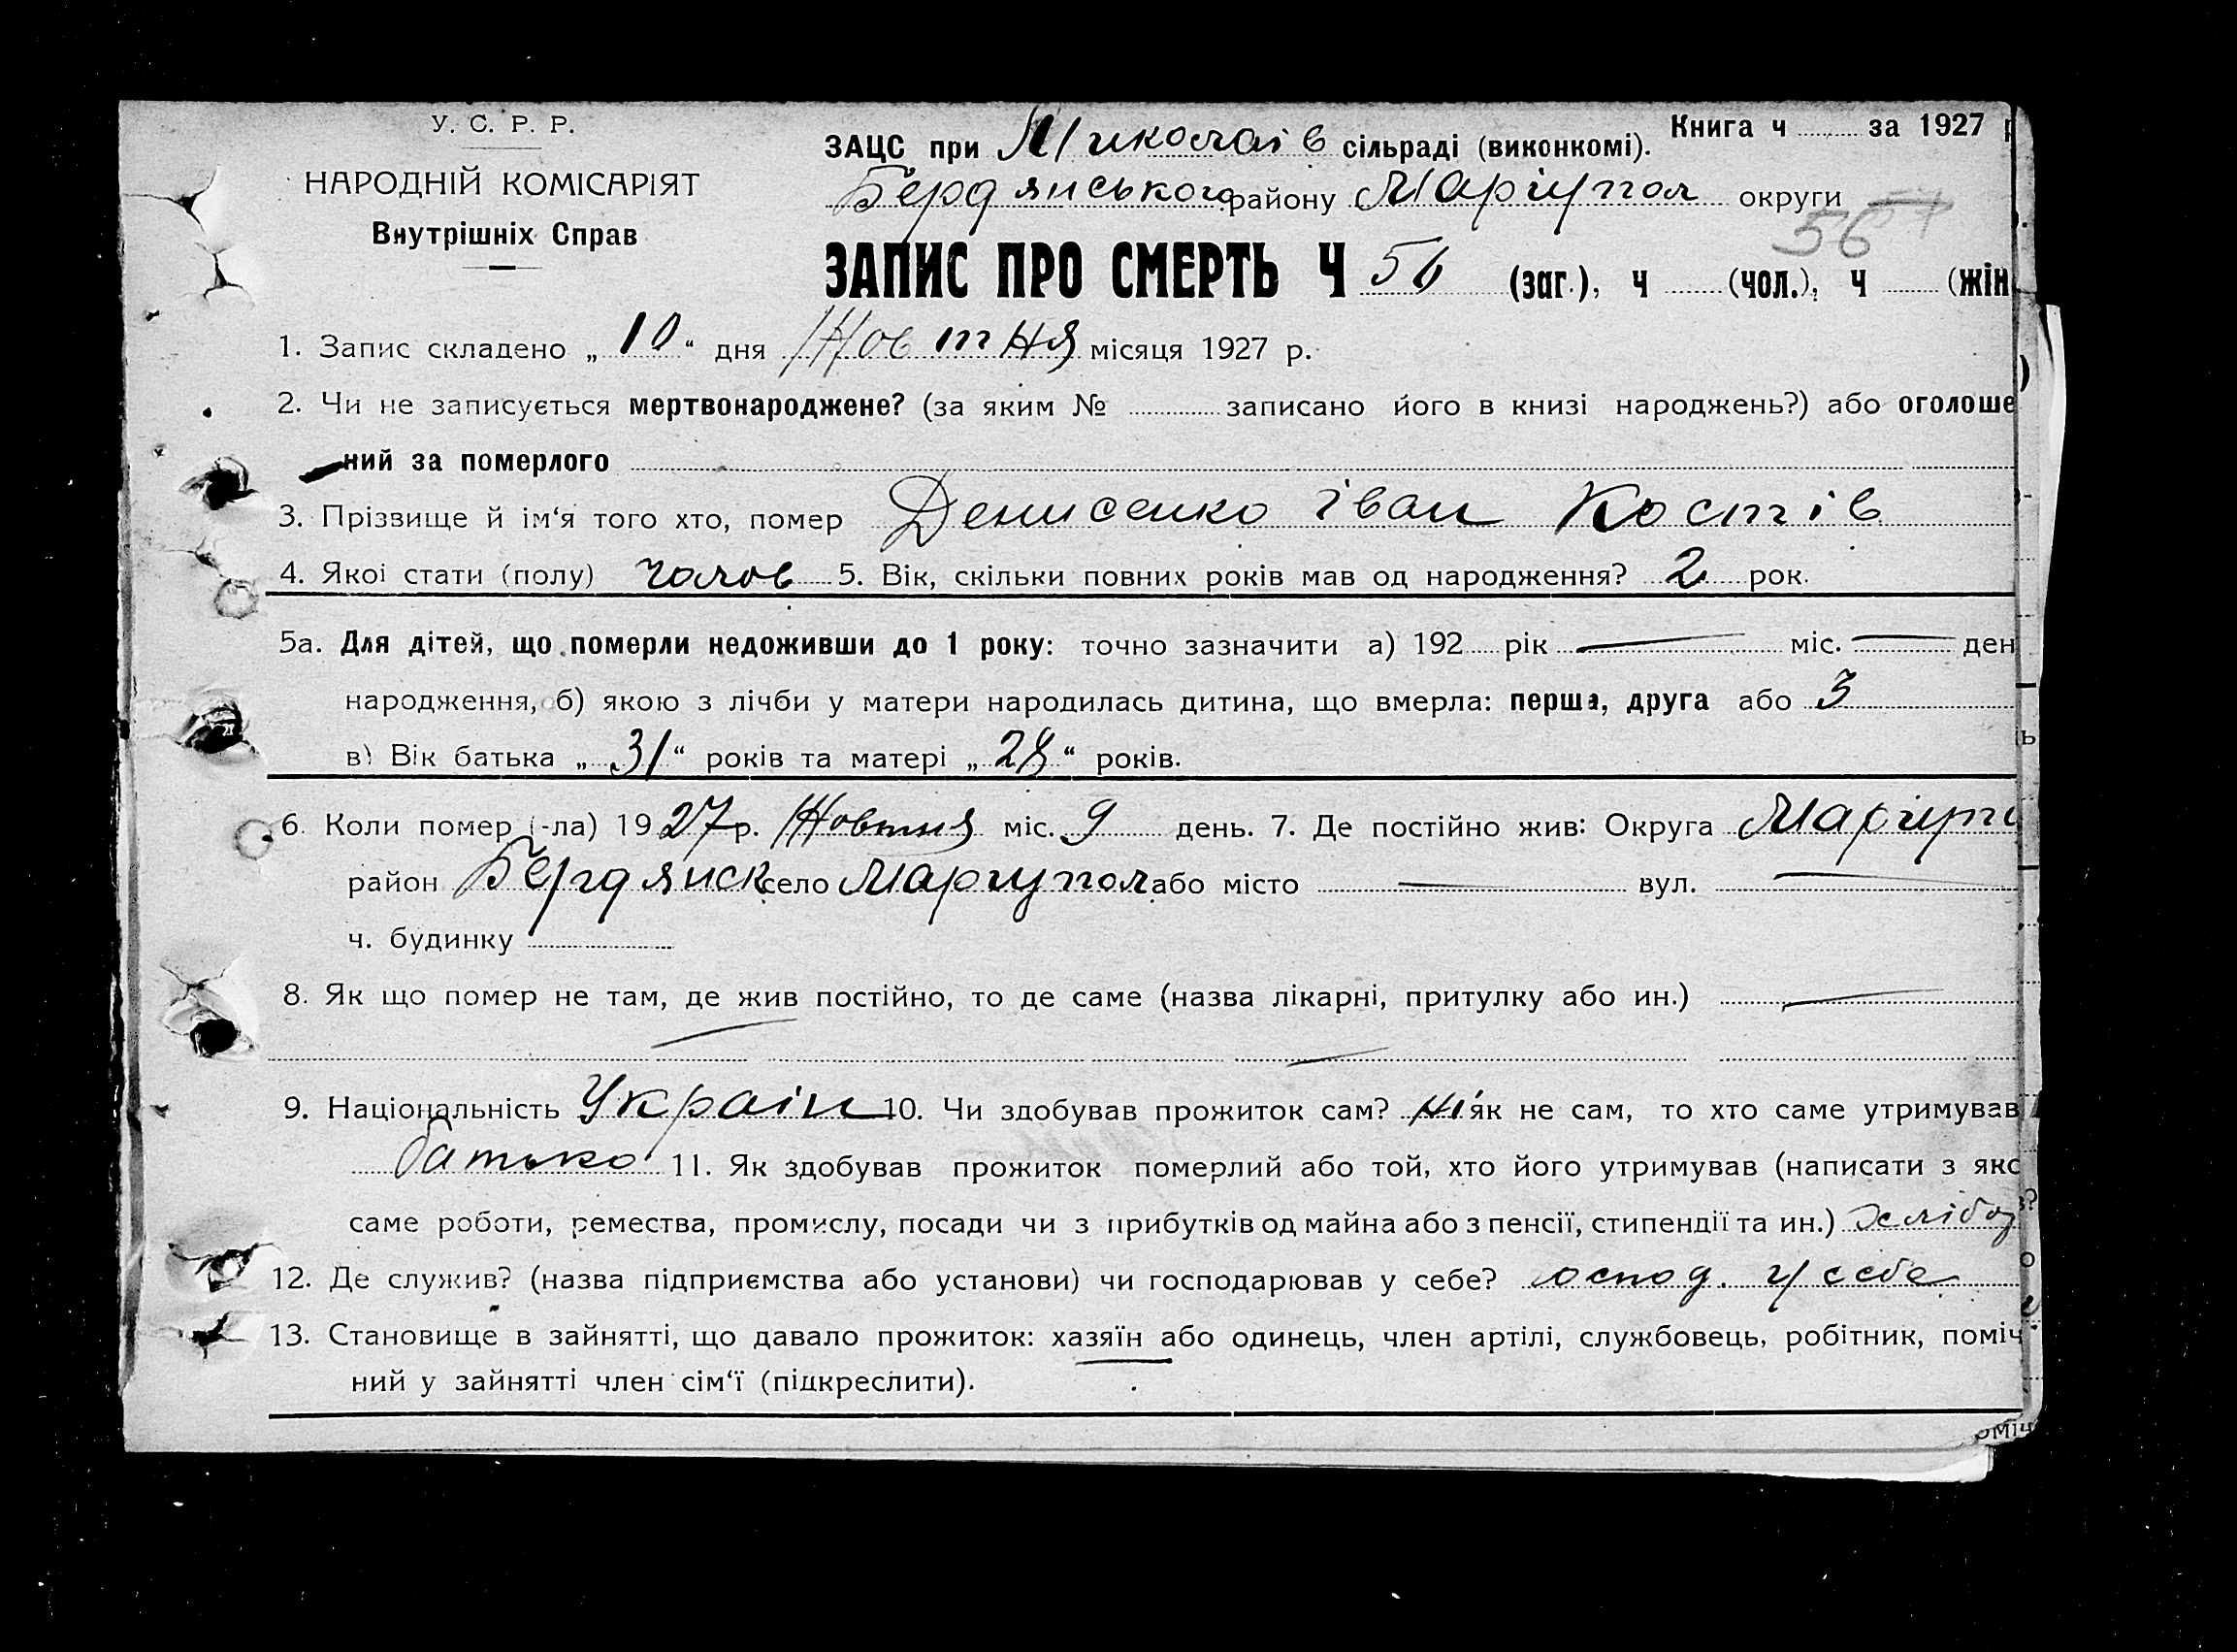 У. С. Р. Р.
НАРОДНІЙ КОМІСАРІЯТ
Внутрішніх Справ
Книга ч ........ за 1927 р
ЗАЦС при Миколаів сільраді (виконкомі).
Бердянського району Маріупол округи
56
ЗАПИС ПРО СМЕРТЬ Ч 56 (заг.), ч ...... (чол.), ч ...... (жін
1. Запис складено „ 10 “ дня Жовтня місяця 1927 р.
2. Чи не записується мертвонароджене? (за яким № ............ записано його в книзі народжень?) або оголоше
ний за померлого
3. Прізвище й ім‘я того хто, помер Денисенко Іван Костів
4. Якоі стати (полу) чолов 5. Вік, скільки повних років мав од народження? 2 рок.
5а. Для дітей, що померли недоживши до 1 року: точно зазначити а) 192.... рік — міс. — ден
народження, б) якою з лічби у матери народилась дитина, що вмерла: перша, друга або 3
в) Вік батька „ 31 “ років та матері „ 28 “ років.
6. Коли помер (-ла) 1927 р. Жовтня міс. 9 день. 7. Де постійно жив: Округа Маріупо
район Бердянск село Маріупол або місто — вул. —
ч. будинку
8. Як що помер не там, де жив постійно, то де саме (назва лікарні, притулку або ин.) —
— —
9. Національність Украін 10. Чи здобував прожиток сам? ні як не сам, то хто саме утримував
батько 11. Як здобував прожиток померлий або той, хто його утримував (написати з яко
саме роботи, ремества, промислу, посади чи з прибутків од майна або з пенсії, стипендії та ин.) хлібо
12. Де служив? (назва підприємства або установи) чи господарював у себе? оспод. у себе
13. Становище в зайнятті, що давало прожиток: хазяїн або одинець, член артілі, службовець, робітник, поміч
ний у зайнятті член сім‘ї (підкреслити).
оміч